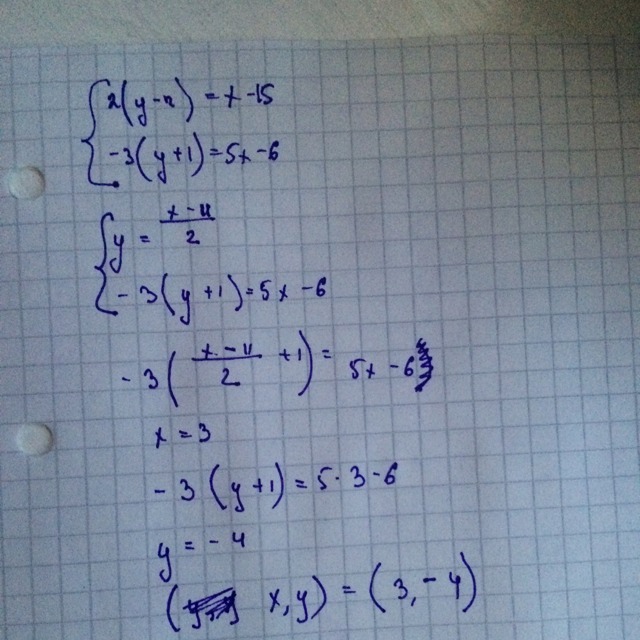 2(y-2) = x-15
-3(y+1) = 5x-6
y = x-11/2
-3(y+1) = 5x-6
-3(x-11/2 +1) = 5x-6
x = 3
-3(y+1) = 5·3-6
y = -4
(x,y) = (3,-4)